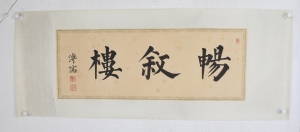 暢敘樓
溥儒